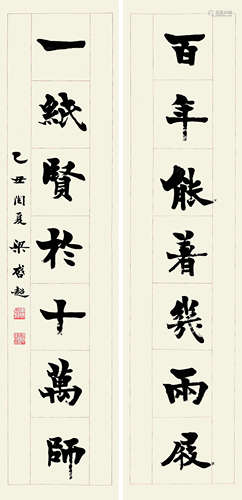 百年能著幾兩屐
一紙賢於十萬師
乙丑閏夏 梁啓超